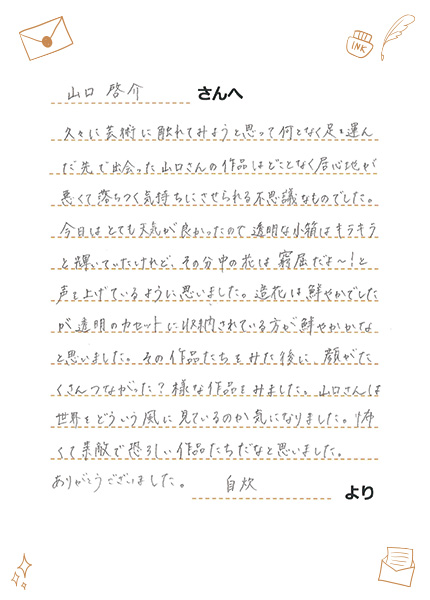 INK
山口 啓介 さんへ
久々に芸術に触れてみようと思って何となく足を運ん
だ先で出会った山口さんの作品はどことなく居心地が
悪くて落ちつく気持ちにさせられる不思議なものでした。
今日はとても天気が良かったので透明な小箱はキラキラ
と輝いていたけれど、その分中の花は窮屈だよ〜!と
声を上げているように思いました。造花は鮮やかでした
が透明のカセットに収納されている方が鮮やかかな
と思いました。その作品たちをみた後に、顔がた
くさんつながった?様な作品をみました。山口さんは
世界をどういう風に見ているのか気になりました。怖
くて素敵で恐ろしい作品たちだなと思いました。
ありがとうございました。 自炊 より